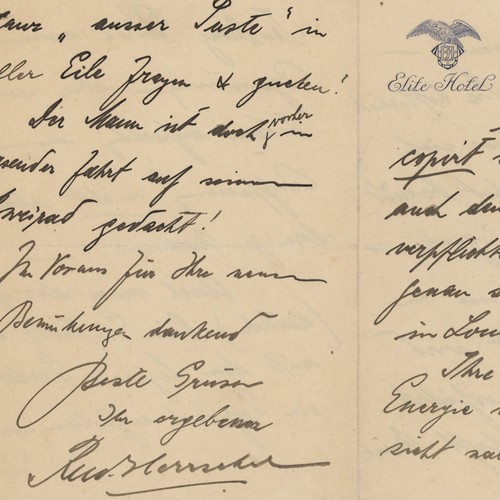 ganz „ausser Puste“ in
aller Eile fragen & gucken!
Der Mann ist doch vorher in
rasender Fahrt auf seinem
Zweirad gedacht!
Im Voraus für Ihre neuen
Bemühungen dankend
Beste Grüsse
Ihr ergebener
Elite Hotel
copirt
auch den
verpflicht
genau s
in Lon
Ihre
Energie
sieht